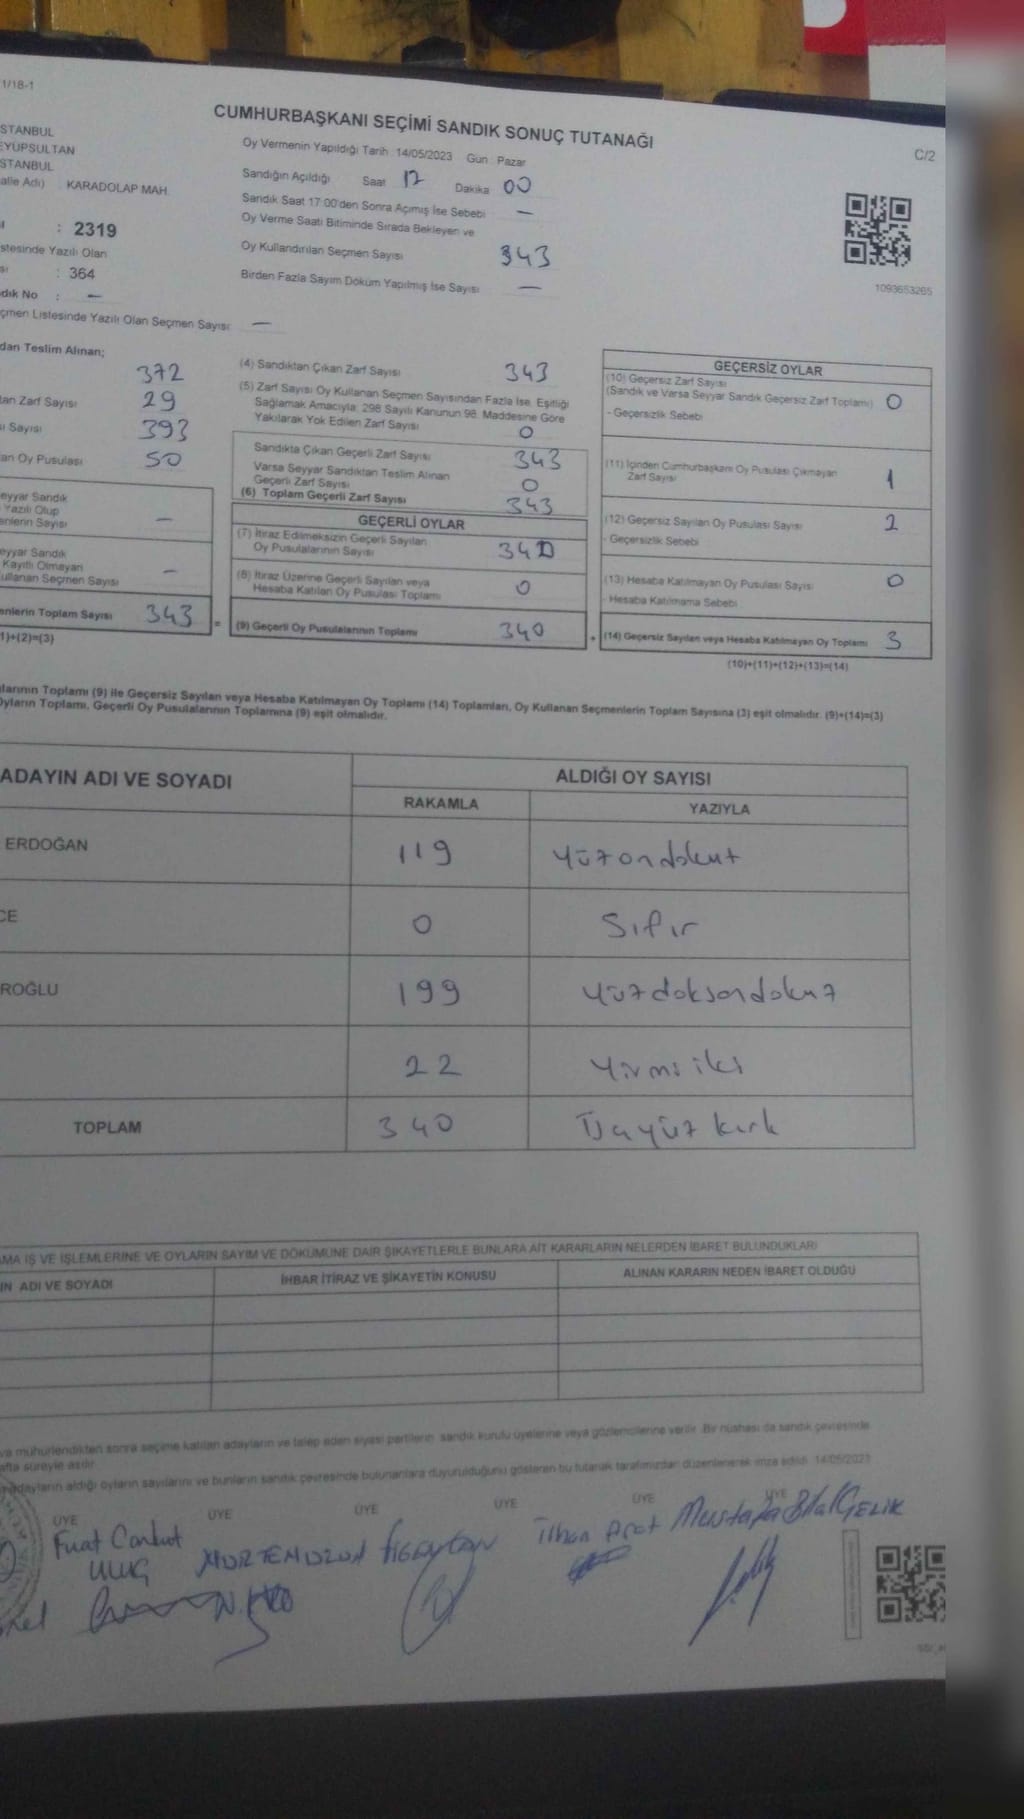 1/18-1
CUMHURBAŞKANI SEÇİMİ SANDIK SONUÇ TUTANAĞI
C/2
STANBUL
EYÜPSULTAN
STANBUL
alle Adı) KARADOLAP MAH.
: 2319
stesinde Yazılı Olan
: 364
dık No : –
çmen Listesinde Yazılı Olan Seçmen Sayısı: –
Oy Vermenin Yapıldığı Tarih : 14/05/2023 Gün : Pazar
Sandığın Açıldığı Saat 17 Dakika 00
Sandık Saat 17:00'den Sonra Açımış İse Sebebi –
Oy Verme Saati Bitiminde Sırada Bekleyen ve
Oy Kullandırılan Seçmen Sayısı 343
Birden Fazla Sayım Döküm Yapılmış İse Sayısı –
1093653265
dan Teslim Alınan;
372
tan Zarf Sayısı 29
ı Sayısı 393
an Oy Pusulası 50
eyyar Sandık
Yazılı Olup
enlerin Sayısı –
eyyar Sandık
Kayıtlı Olmayan
ullanan Seçmen Sayısı –
enlerin Toplam Sayısı 343
1)+(2)=(3)
(4) Sandıktan Çıkan Zarf Sayısı 343
(5) Zarf Sayısı Oy Kullanan Seçmen Sayısından Fazla İse, Eşitliği
Sağlamak Amacıyla; 298 Sayılı Kanunun 98. Maddesine Göre
Yakılarak Yok Edilen Zarf Sayısı 0
Sandıkta Çıkan Geçerli Zarf Sayısı 343
Varsa Seyyar Sandıktan Teslim Alınan
Geçerli Zarf Sayısı 0
(6) Toplam Geçerli Zarf Sayısı 343
GEÇERLİ OYLAR
(7) İtiraz Edilmeksizin Geçerli Sayılan
Oy Pusulalarının Sayısı 340
(8) İtiraz Üzerine Geçerli Sayılan veya
Hesaba Katılan Oy Pusulası Toplamı 0
(9) Geçerli Oy Pusulalarının Toplamı 340
=
+
GEÇERSİZ OYLAR
(10) Geçersiz Zarf Sayısı
(Sandık ve Varsa Seyyar Sandık Geçersiz Zarf Toplamı) 0
- Geçersizlik Sebebi
(11) İçinden Cumhurbaşkanı Oy Pusulası Çıkmayan
Zarf Sayısı 1
(12) Geçersiz Sayılan Oy Pusulası Sayısı 2
- Geçersizlik Sebebi
(13) Hesaba Katılmayan Oy Pusulası Sayısı 0
- Hesaba Katılmama Sebebi
(14) Geçersiz Sayılan veya Hesaba Katılmayan Oy Toplamı 3
(10)+(11)+(12)+(13)=(14)
larının Toplamı (9) ile Geçersiz Sayılan veya Hesaba Katılmayan Oy Toplamı (14) Toplamları, Oy Kullanan Seçmenlerin Toplam Sayısına (3) eşit olmalıdır. (9)+(14)=(3)
Oyların Toplamı, Geçerli Oy Pusulalarının Toplamına (9) eşit olmalıdır.
ADAYIN ADI VE SOYADI
ALDIĞI OY SAYISI
RAKAMLA YAZIYLA
ERDOĞAN 119 Yüzondokuz
CE 0 Sıfır
ROĞLU 199 Yüzdoksandokuz
22 Yirmi iki
TOPLAM 340 Üçyüz kırk
AMA İŞ VE İŞLEMLERİNE VE OYLARIN SAYIM VE DÖKÜMÜNE DAİR ŞİKAYETLERLE BUNLARA AİT KARARLARIN NELERDEN İBARET BULUNDUKLARI
IN ADI VE SOYADI İHBAR İTİRAZ VE ŞİKAYETİN KONUSU ALINAN KARARIN NEDEN İBARET OLDUĞU
va mühürlendikten sonra seçime katılan adayların ve talep eden siyasi partilerin sandık kurulu üyelerine veya gözlemcilerine verilir. Bir nüshası da sandık çevresinde
afta süreyle asılır.
adayların aldığı oyların sayılarını ve bunların sandık çevresinde bulunanlara duyurulduğunu gösteren bu tutanak tarafımızdan düzenlenerek imza edildi. 14/05/2023
ÜYE ÜYE ÜYE ÜYE ÜYE ÜYE
Fuat Canbut
İlhan Arat
Mustafa Bilal ÇELİK